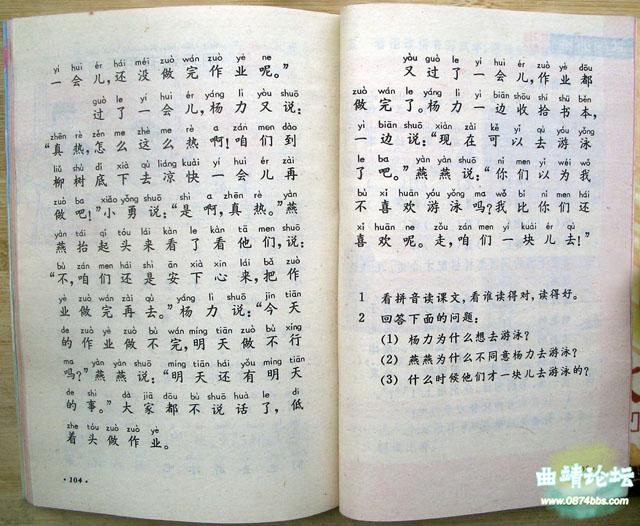 yí huì ér hái méi zuò wán zuò yè ne
一会儿,还没做完作业呢。”
guò le yí huì ér yáng lì yòu shuō
过了一会儿,杨力又说:
zhēn rè zěn me zhè me rè a zán men dào
“真热,怎么这么热啊!咱们到
liǔ shù dǐ xià qù liáng kuài yí huì ér zài
柳树底下去凉快一会儿再
zuò ba xiǎo yǒng shuō shì a zhēn rè yàn
做吧!”小勇说:“是啊,真热。”燕
yàn tái qǐ tóu lái kàn le kàn tā men shuō
燕抬起头来看了看他们,说:
bù zán men hái shì ān xià xīn lái bǎ zuò
“不,咱们还是安下心来,把作
yè zuò wán zài qù yáng lì shuō jīn tiān
业做完再去。”杨力说:“今天
de zuò yè zuò bù wán míng tiān zuò bù xíng
的作业做不完,明天做不行
ma yàn yàn shuō míng tiān hái yǒu míng tiān
吗?”燕燕说:“明天还有明天
de shì dà jiā dōu bù shuō huà le dī
的事。”大家都不说话了,低
zhe tóu zuò zuò yè
着头做作业。
·104·
yòu guò le yí huì ér zuò yè dōu
又过了一会儿,作业都
zuò wán le yáng lì yì biān shōu shi shū běn
做完了。杨力一边收拾书本,
yì biān shuō xiàn zài kě yǐ qù yóu yǒng
一边说:“现在可以去游泳
le ba yàn yàn shuō nǐ men yǐ wéi wǒ
了吧。”燕燕说:“你们以为我
bù xǐ huān yóu yǒng ma wǒ bǐ nǐ men hái
不喜欢游泳吗?我比你们还
xǐ huān ne zǒu zán men yí kuài ér qù
喜欢呢。走,咱们一块儿去!”
1 看拼音读课文,看谁读得对,读得好。
2 回答下面的问题:
(1) 杨力为什么想去游泳?
(2) 燕燕为什么不同意杨力去游泳?
(3) 什么时候他们才一块儿去游泳的?
曲靖论坛
www.0874bbs.com